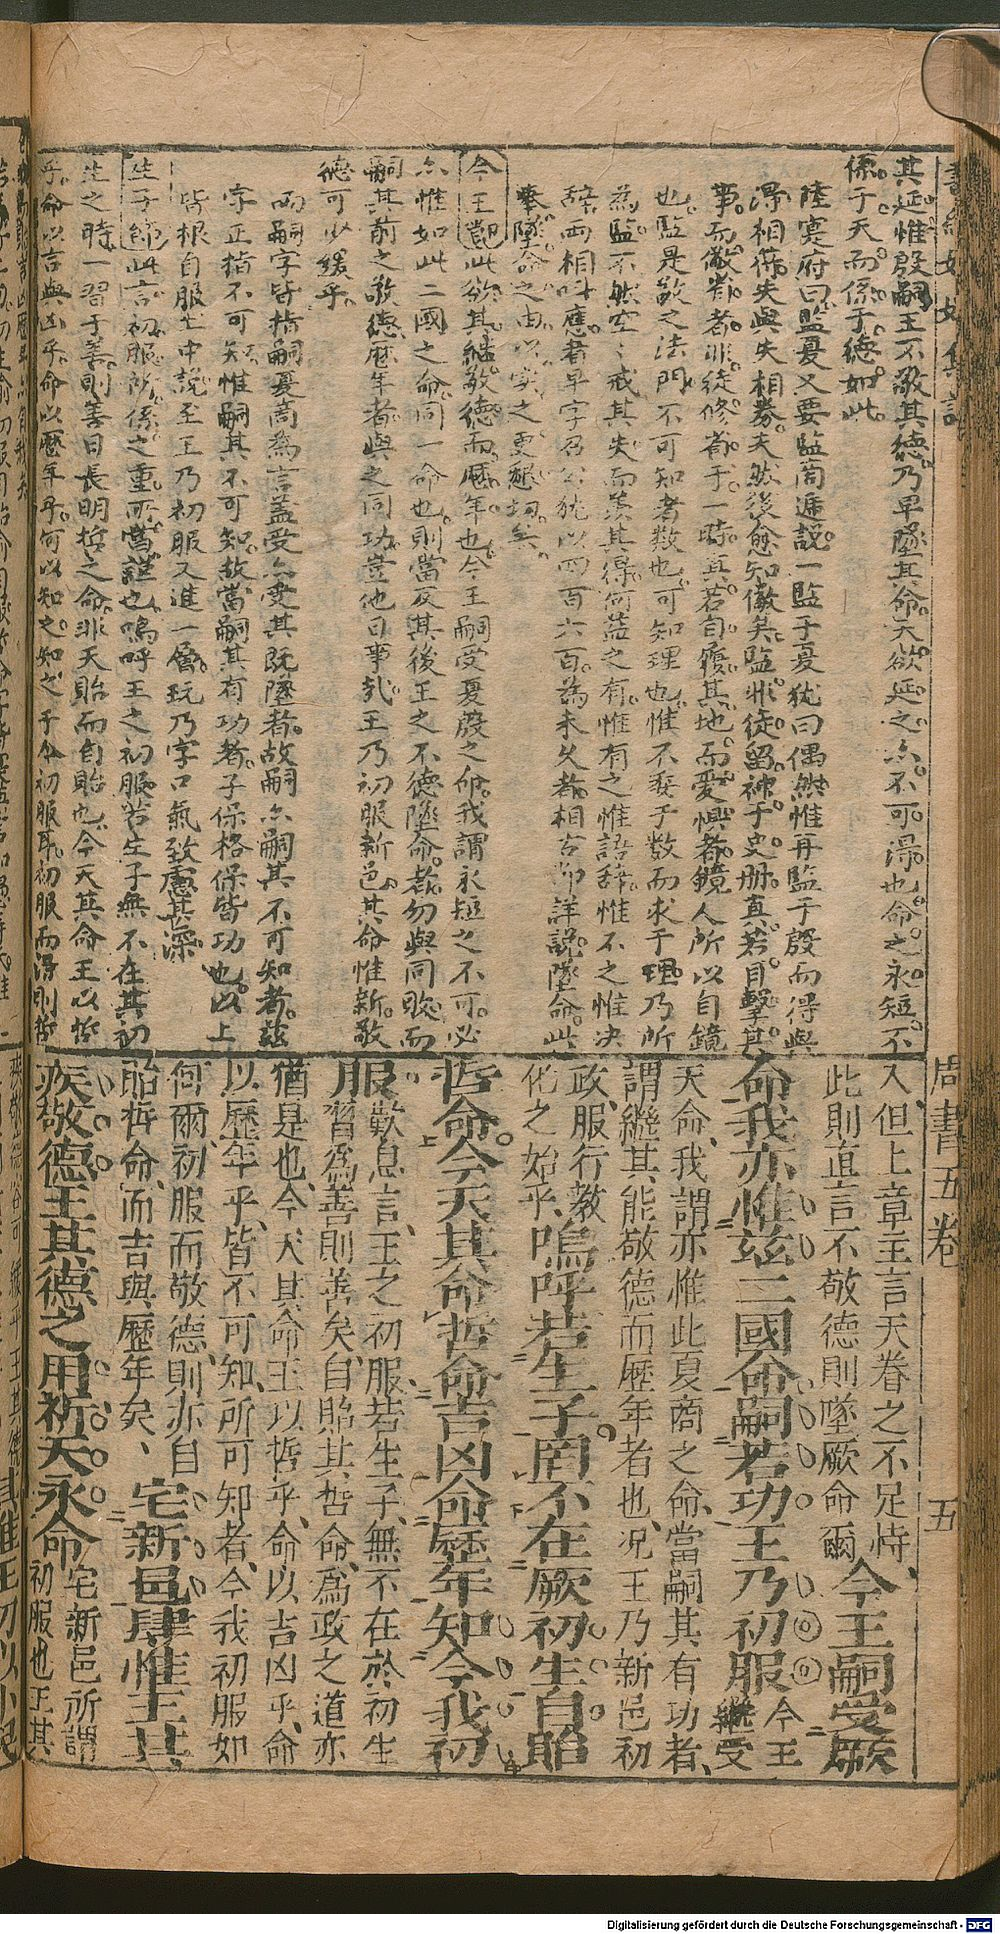 其延惟殷嗣王不敬其德乃早墜其命天欲延之亦不可得也命之永短不
係于天而係于德如此
陸寔府曰監夏又要監商遞說一監于夏猶曰偶然惟再監于殷而得與
得相符失與失相券夫然後愈知儆矣監非徒留神于史冊真若目擊其
事而儆都者非徒修省于一時真若自履其地而愛懼者鏡人所以自鏡
也監是敬之法門不可知者數也可知理也惟不委于數而求于理乃所
為監不然空空戒其失而羨其得何益之有惟有之惟語辭惟不之惟決
辭兩相呼應者早字召公猶以四百六百為未久者相古節詳說墜命此
墜命之由以實之更懇切矣
今王節此欲其繼敬德而歷年也今王嗣受夏殷之命我謂永短之不可必
亦惟如此二國之命同一命也則當反其後王之不德墜命者勿與同敗而
嗣其前之敬德歷年者與之同功豈他日事哉王乃初服新邑其命惟新敬
德可少緩乎
兩嗣字皆指嗣夏商為言蓋受亦受其既墜者故嗣亦嗣其不可知者茲
字正指不可知惟嗣其不可知故當嗣其有功者子保格保皆功也以上
皆根自服土中說至王乃初服又進一層玩乃字口氣致慮甚深
生子節此言初服所係之重所當謹也嗚呼王之初服若生子無不在其初
生之時一習于善則善日長明哲之命非天貽而自貽也今天其命王以哲
乎命以吉與凶乎命以歷年乎何以知之知之于今初服耳初服而得則哲
周書五卷
五
人但上章主言天眷之不足恃
此則直言不敬德則墜厥命爾 今王嗣受厥
命我亦惟茲二國命嗣若功王乃初服 今王繼受
天命我謂亦惟此夏商之命當嗣其有功者
謂繼其能敬德而歷年者也况王乃新邑初
政服行教
化之始乎 嗚呼若生子罔不在厥初生自貽
哲命今天其命哲命吉凶命歷年知今我初
服 歎息言王之初服若生子無不在於初生
習為善則善矣自貽其哲命為政之道亦
猶是也今天其命王以哲乎命以吉凶乎命
以歷年乎皆不可知所可知者今我初服如
何爾初服而敬德則亦自
貽哲命而吉與歷年矣 宅新邑肆惟王其
疾敬德王其德之用祈天永命 宅新邑所謂
初服也王其
Digitalisierung gefördert durch die Deutsche Forschungsgemeinschaft - DFG